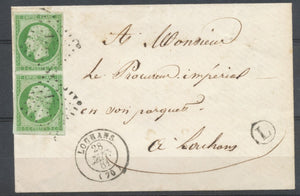 EMPIRE FRANC
A Monsieur
Le Procureur impérial
en son parquet
a Louhans
LOUHANS
28
(70)
L